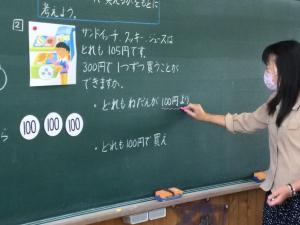 考えよう。
2
サンドイッチ、クッキー、ジュースは
どれも105円です。
300円で1つずつ買うことが
できますか。
・どれもねだんが100円より
100 100 100
・どれも100円で買え